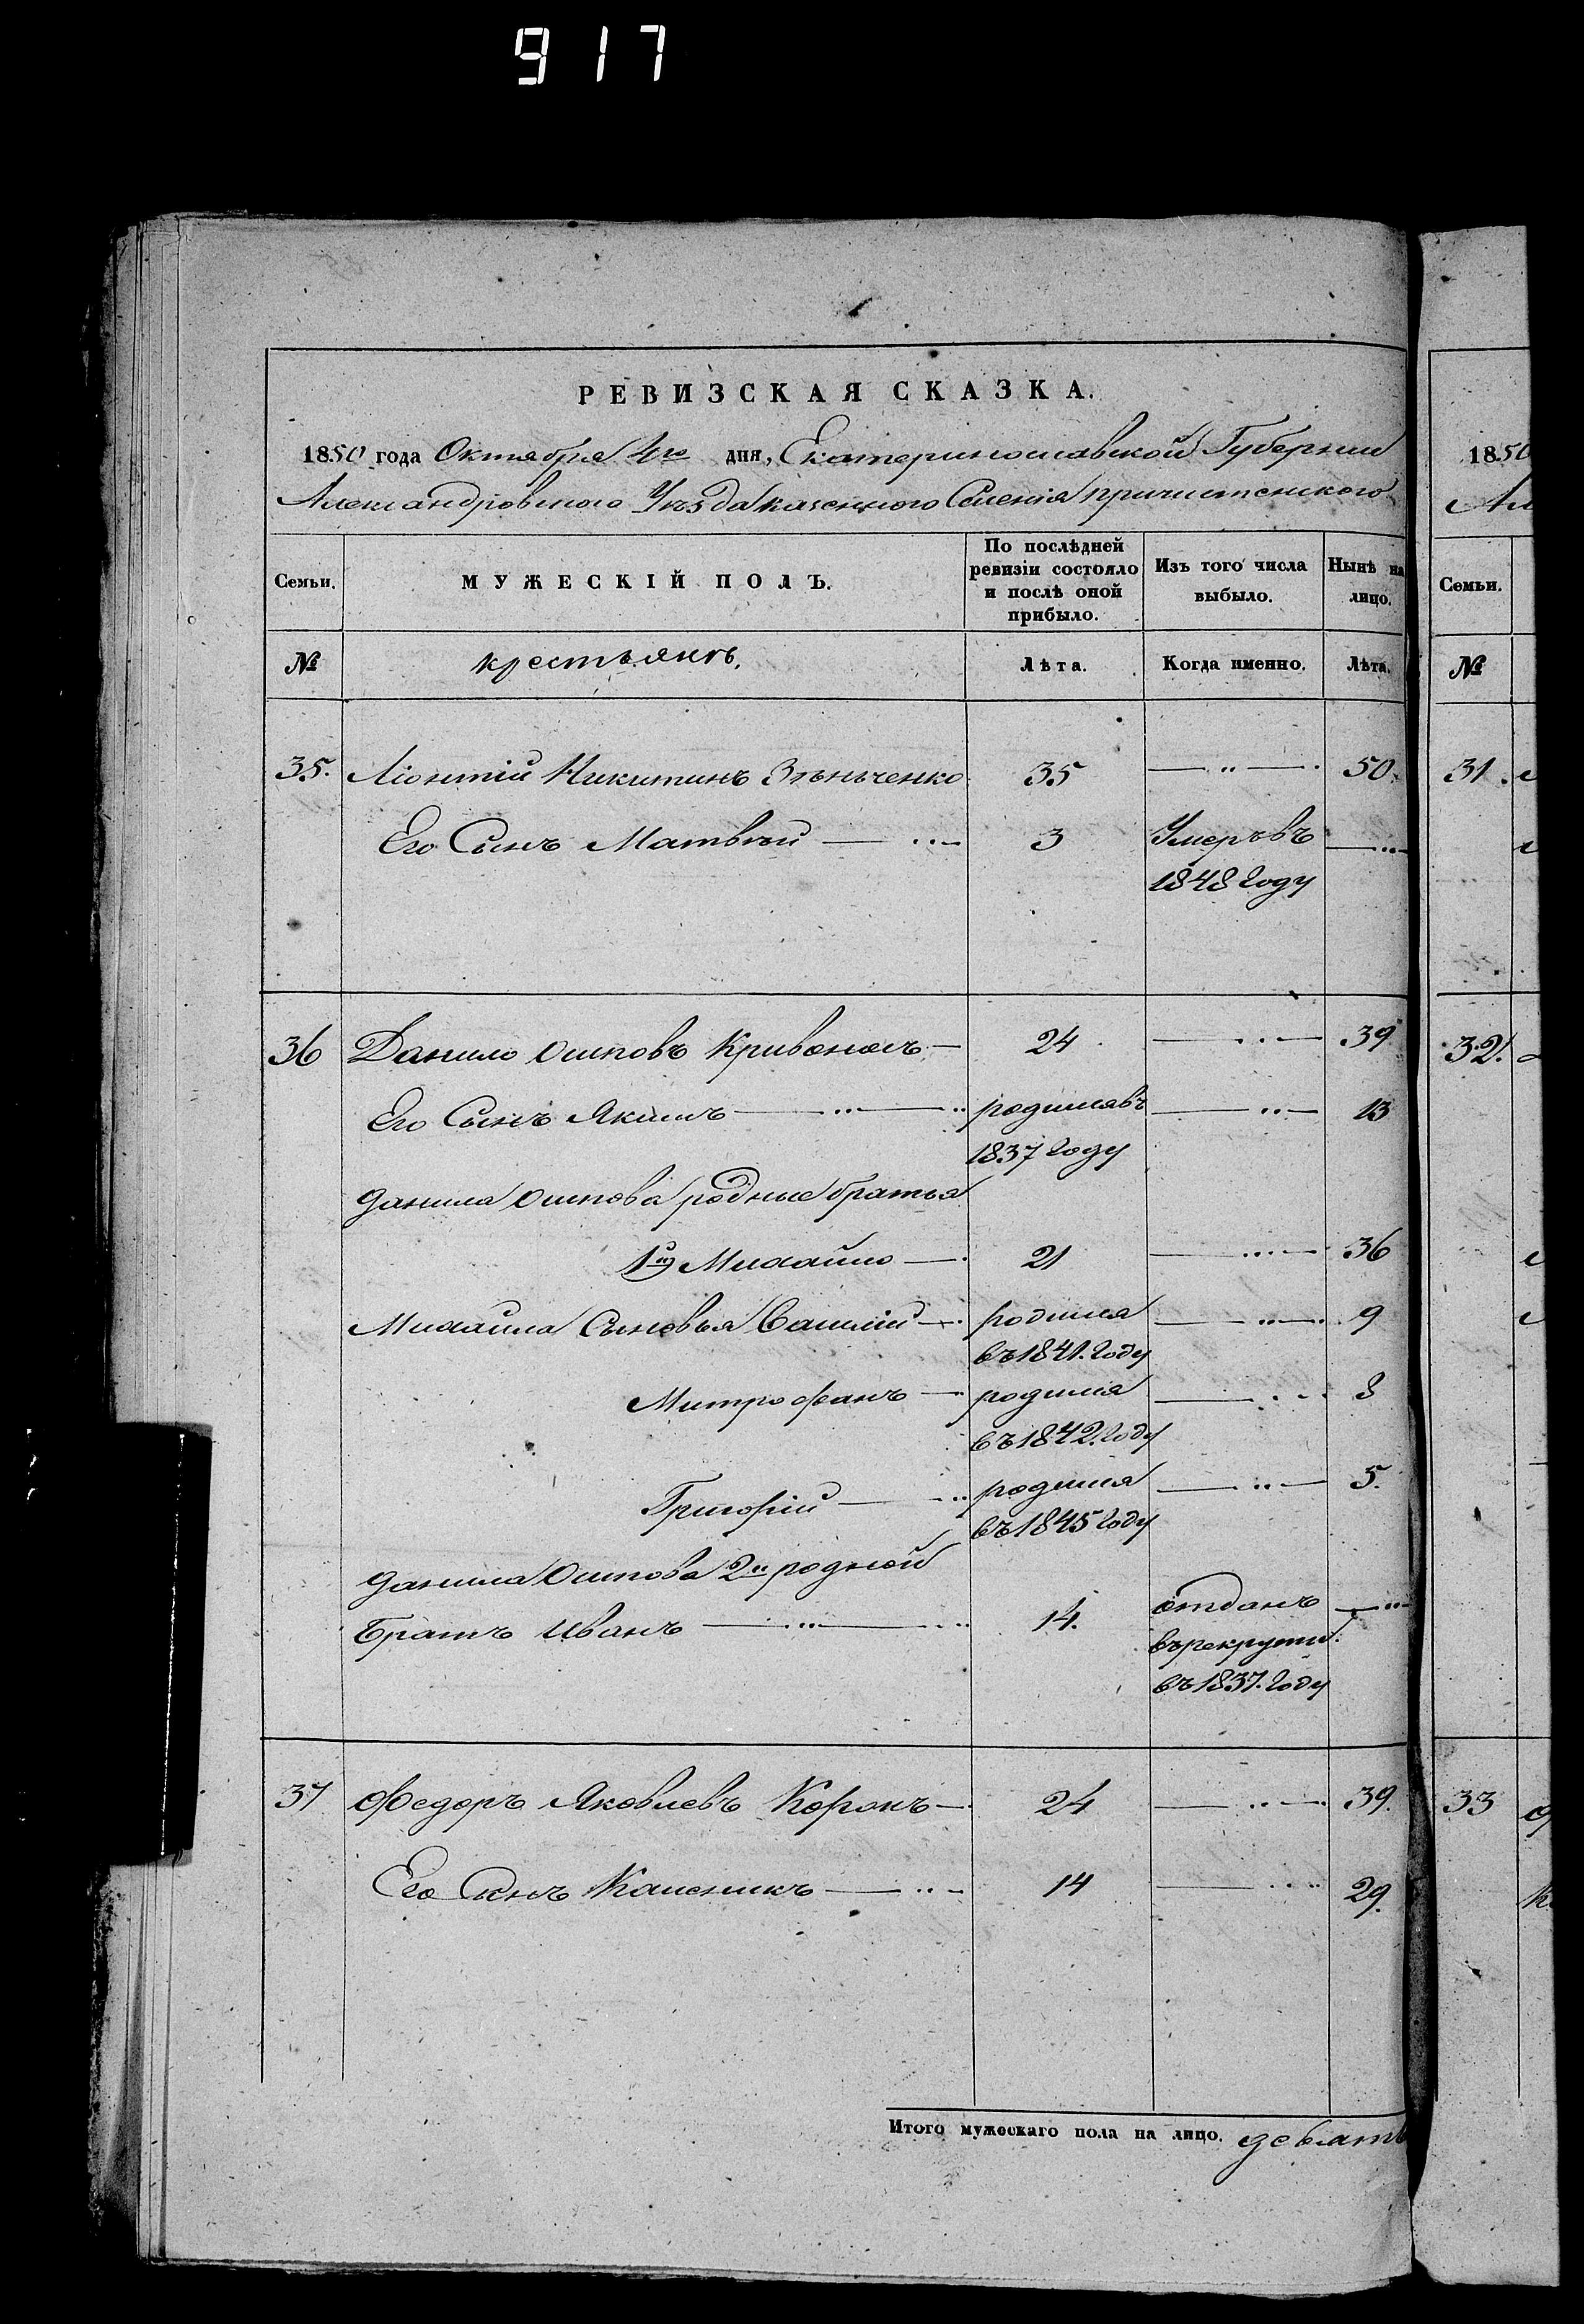 917
РЕВИЗСКАЯ СКАЗКА.
1850 года Октября 4го дня, Екатеринославской Губернии
Александровского Уѣзда казенного Селенія Причистенского
Семьи. МУЖЕСКІЙ ПОЛЪ. По послѣдней ревизіи состояло и послѣ оной прибыло. Изъ того числа выбыло. Нынѣ на лицо.
№ крестьянъ. Лѣта. Когда именно. Лѣта.
35. Ліонтій Никитинъ Зѣньченко 35 50.
Его Сынъ Матвѣй 3 Умеръ въ
1848 году
36 Данило Осиповъ Кривоносъ 24 39
Его Сынъ Якимъ родился въ 13
1837 году
Данила Осипова родные братья
1й Михайло 21 36
Михайла Сыновья Василій родился 9
въ 1841. году
Митрофанъ родился 8
въ 1842. году
Григорій родился 5.
въ 1845 году
Данила Осипова 2й родной
Братъ Иванъ 14. отданъ
въ рекруты.
въ 1837. году
37 Федоръ Яковлевъ Коронъ 24 39.
Его Сынъ Каленикъ 14 29.
Итого мужескаго пола на лицо. девять
1850
Семьи.
№
31.
32.
33